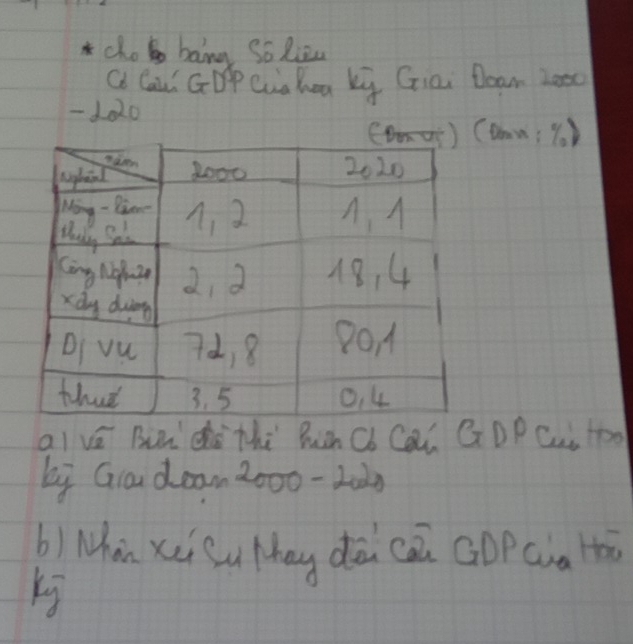 * cho bảng số liệu
Cơ Cấu GDP của hoa kỳ Giai Đoạn 2000
- 2020
(Đơn vị) (Đơn : %)
năm
Nghành 2000 2020
Nông - Lâm -
thủy Sản 1,2 1,1
Công Nghiệp
xây dựng 2,2 18,4
Dị vụ 72,8 80,1
thuế 3,5 0,4
a) vẽ Biểu đồ thể hiện Cơ Cấu GDP của Hoa
kỳ Giai đoạn 2000 - 2020
b) Nhận xét sự thay đổi cấu GDP của Hoa
kỳ